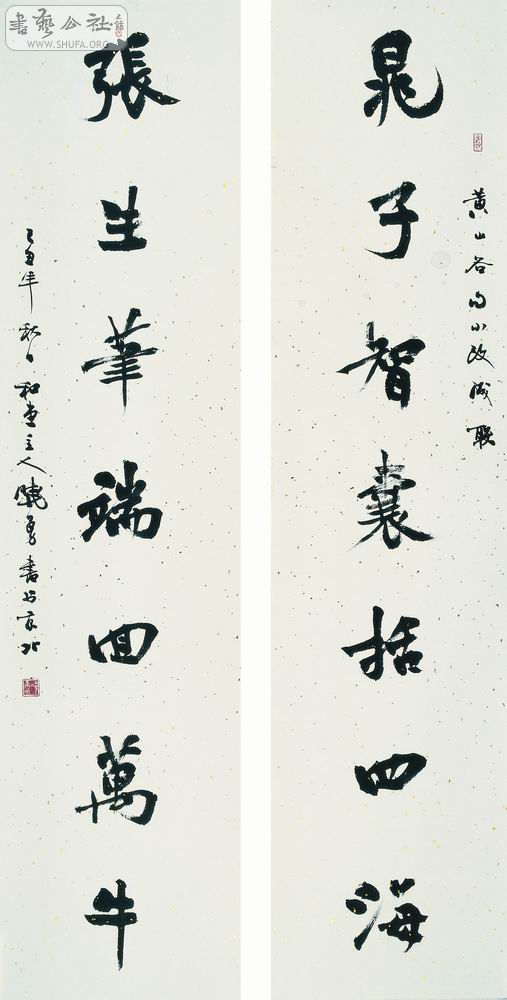 黄山谷句小改成联
晁子智囊括四海
張生筆端回萬牛
乙酉年秋日和堂主人晓勇書於京北
書藝公社
WWW.SHUFA.ORG